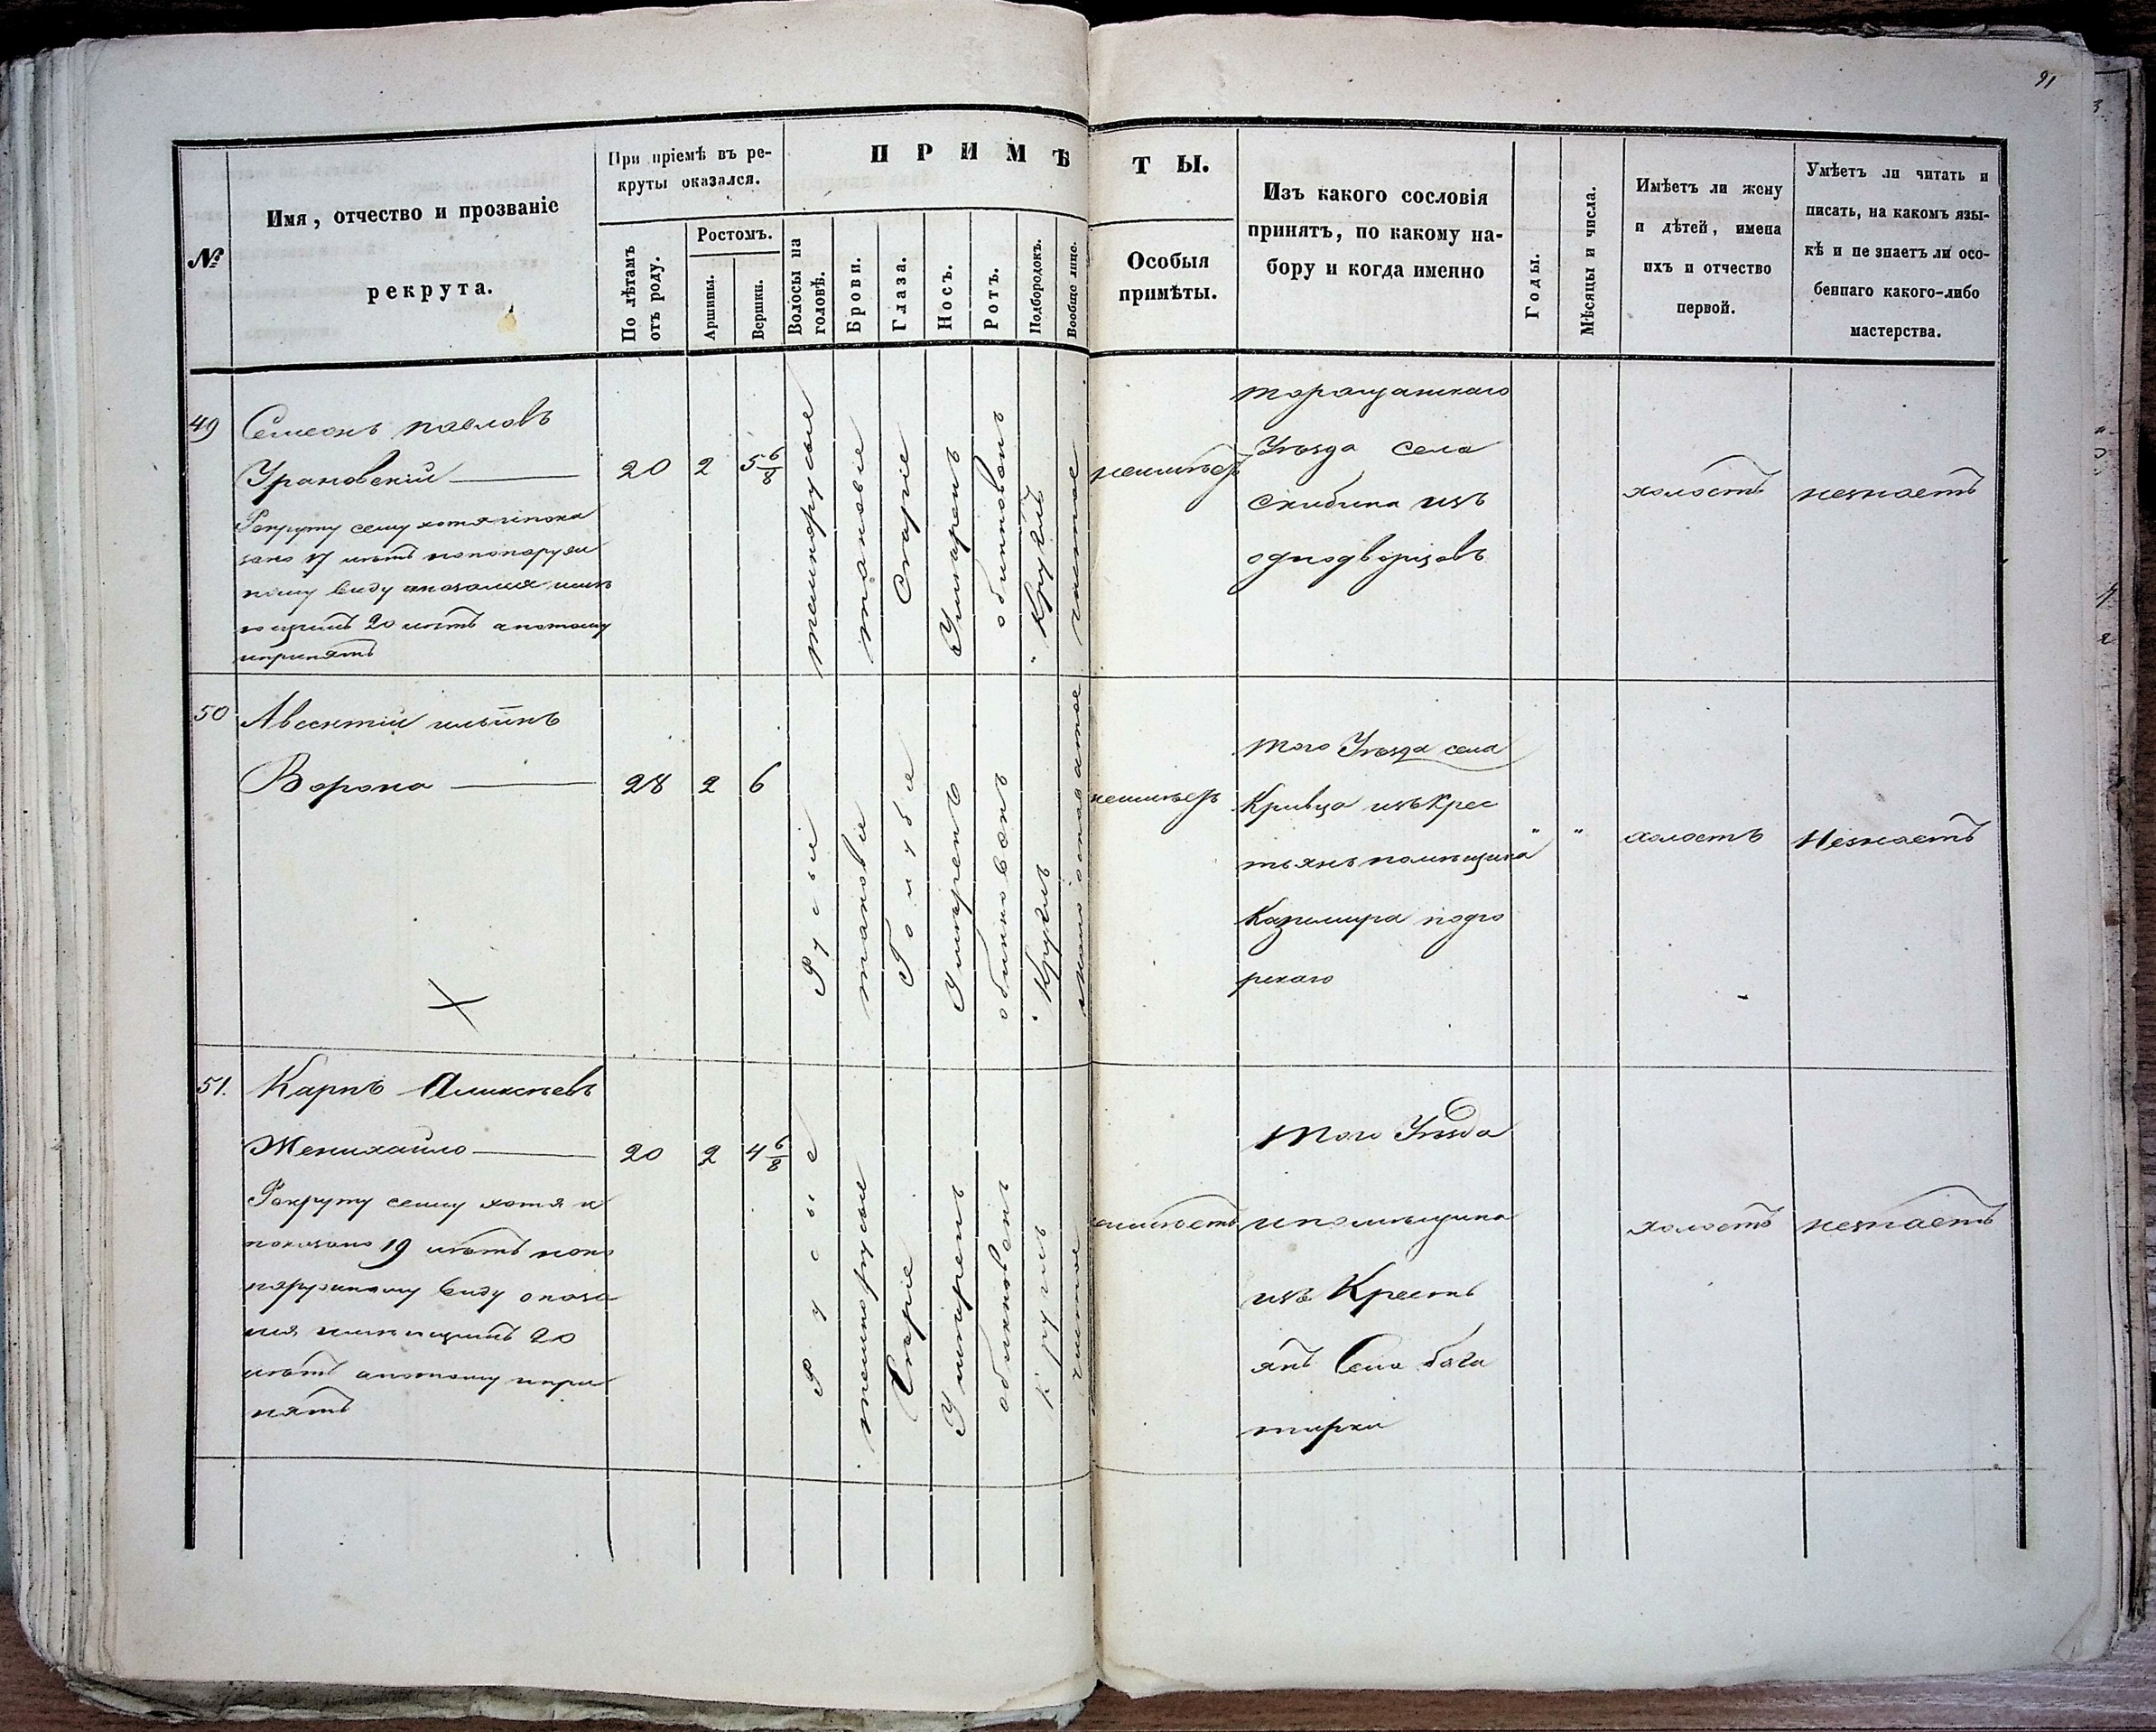 91
№
Имя, отчество и прозваніе
рекрута.
При пріемѣ въ ре-
круты оказался.
По лѣтамъ
отъ роду.
Ростомъ.
Аршины.
Вершки.
ПРИМѢТЫ.
Волосы на
головѣ.
Брови.
Глаза.
Носъ.
Ротъ.
Подбородокъ.
Вообще лице.
Особыя
примѣты.
Изъ какого сословія
принятъ, по какому на-
бору и когда именно
Годы.
Мѣсяцы и числа.
Имѣетъ ли жену
и дѣтей, имена
ихъ и отчество
первой.
Умѣетъ ли читать и
писать, на какомъ язы-
кѣ и не знаетъ ли осо-
беннаго какого-либо
мастерства.
49
Семеонъ павловъ
Урановскій
Рекруту сему хотя ипока
зано 17 летъ нопонаруж
ному виду оказался име
ющимъ 20 летъ апотому
ипринятъ
20
2
5 6/8
темнорусые
таковіе
Старіе
Умѣренъ
обикновенъ
Круглъ
чистое
неимѣетъ
таращанскаго
Уѣзда села
Скибина изъ
однодворцовъ
холостъ
незнаетъ
50
Авсентій ильинъ
Ворона
28
2
6
Русыи
таковіи
Голубе
Умѣренъ
обикновенъ
Круглъ
мало осповатое
неимѣетъ
того Уѣзда села
Кривца изъ Крес
тьянъ помѣщика
Казимира подго
рскаго
" "
холостъ
Незнаетъ
51.
Карпъ Аликсѣевъ
Женихайло
Рекруту сему хотя и
показано 19 лѣтъ нопо
наружному виду оказа
лся имеющимъ 20
лѣтъ апотому ипри
нятъ
20
2
4 6/8
Русые
темнорусые
Старіе
Умѣренъ
обикновенъ
Круглъ
чистое
неимѣетъ
того Уѣзда
ипомѣщика
изъ Кресть
янъ Села бага
тирки
холостъ
незнаетъ